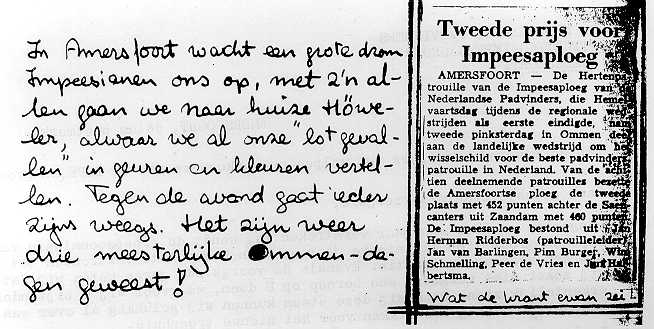 In Amersfoort wacht een grote drom
Impeesianen ons op, met z'n al-
len gaan we naar huize Höwe-
ler, alwaar we al onze "lotgeval-
len" in geuren en kleuren vertel-
len. Tegen de avond gaat ieder
zijns weegs. Het zijn weer
drie meesterlijke Ommen-da-
gen geweest!
Tweede prijs voor
Impeesaploeg
AMERSFOORT — De Hertenpa-
trouille van de Impeesaploeg van de
Nederlandse Padvinders, die Heme-
vaartsdag tijdens de regionale wed-
strijden als eerste eindigde, nam
tweede pinksterdag in Ommen deel
aan de landelijke wedstrijd om het
wisselschild voor de beste padvinders-
patrouille in Nederland. Van de ach-
tien deelnemende patrouilles bezette
de Amersfoortse ploeg de tweede
plaats met 452 punten achter de
canters uit Zaandam met 460 punten.
De Impeesaploeg bestond uit Jan
Herman Ridderbos (patrouilleleider)
Jan van Barlingen, Pim Burger, Wim
Schmelling, Peer de Vries en
bertsma.
Wat de krant ervan zei